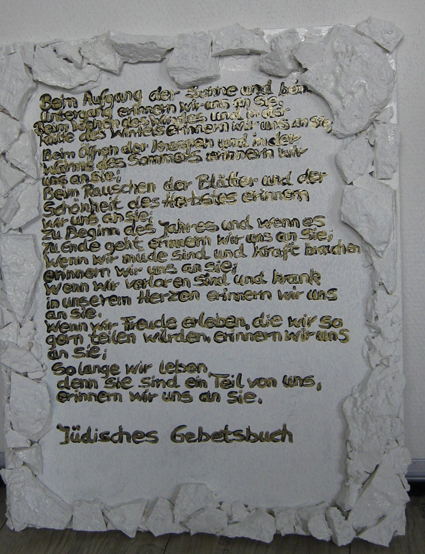 Beim Aufgang der Sonne und bei
Untergang erinnern wir uns an sie;
Beim Wehen des Windes und in der
Kälte des Winters erinnern wir uns an sie,
Beim Öffnen der Knospen und in der
Wärme des Sommers erinnern wir
uns an sie;
Beim Rauschen der Blätter und der
Schönheit des Herbstes erinnern
wir uns an sie;
Zu Beginn des Jahres und wenn es
zu Ende geht erinnern wir uns an sie;
Wenn wir müde sind und Kraft brauchen
erinnern wir uns an sie;
Wenn wir verloren sind und krank
in unserem Herzen erinnern wir uns
an sie.
Wenn wir Freude erleben, die wir so
gern teilen würden, erinnern wir uns
an sie;
So lange wir leben,
denn sie sind ein Teil von uns,
erinnern wir uns an sie.
Jüdisches Gebetsbuch